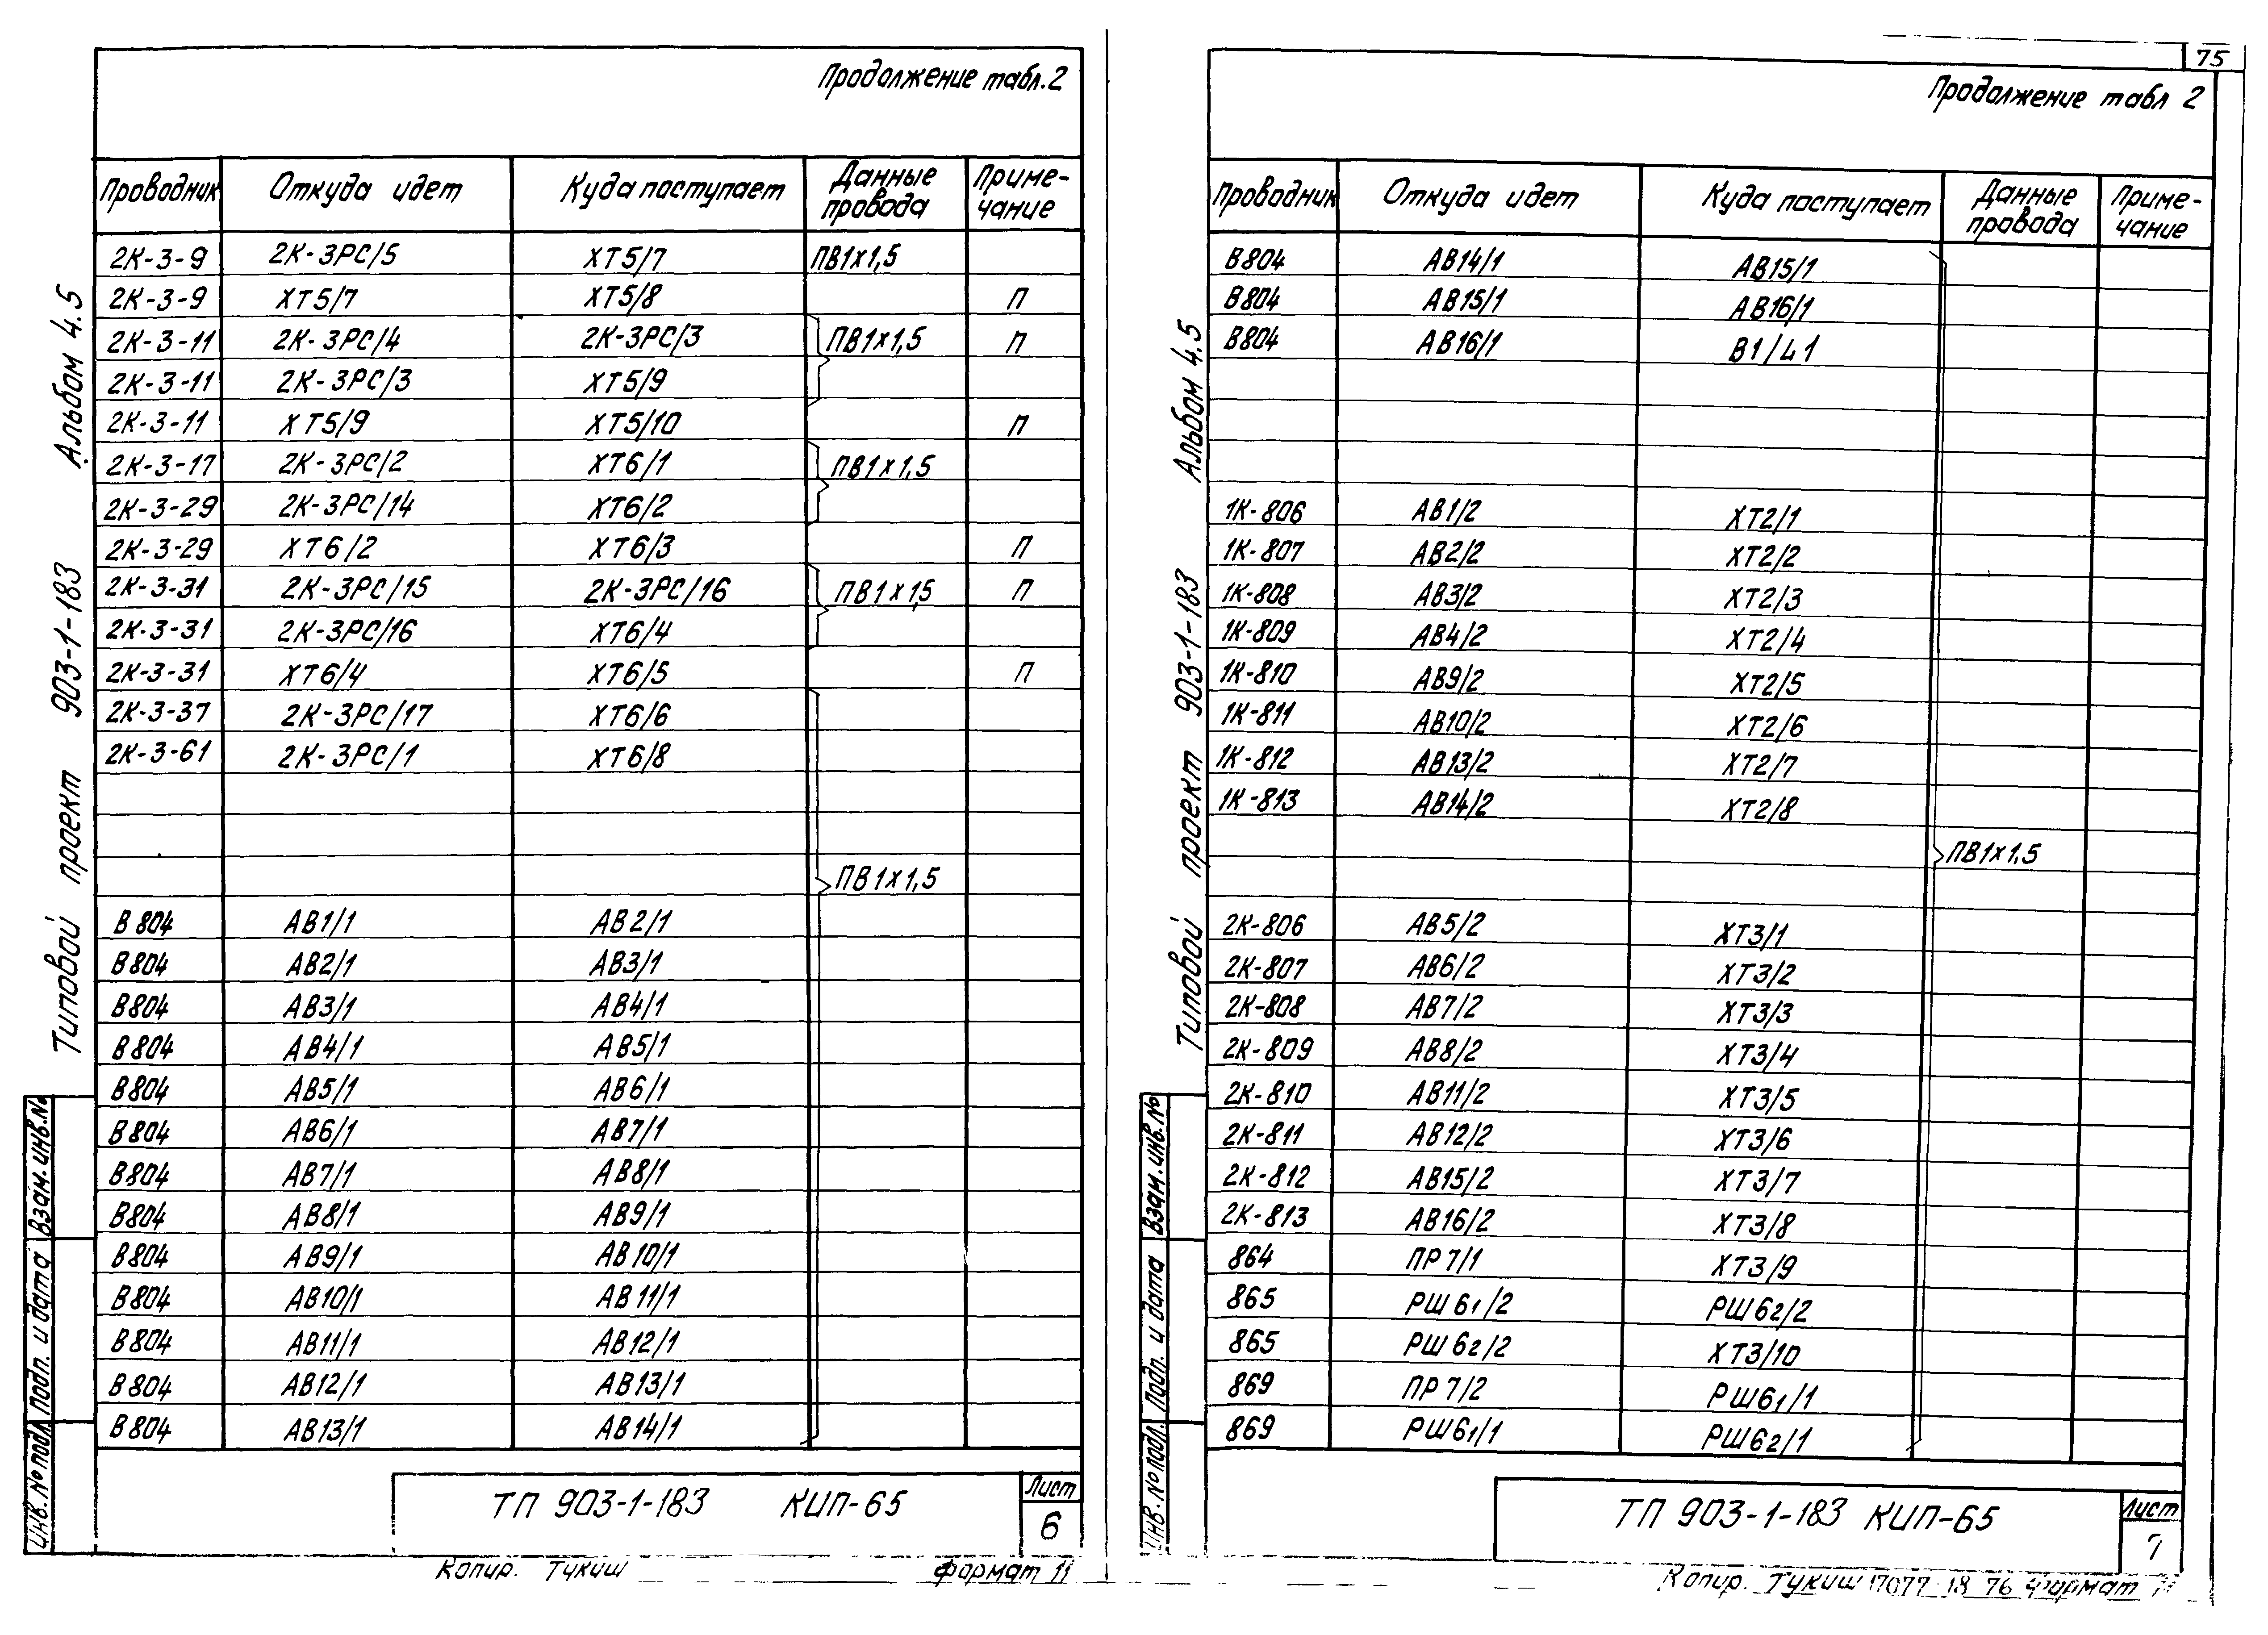 Продолжение табл.2
Проводник Откуда идет Куда поступает Данные провода Приме-чание
2К-3-9 2К-3РС/5 ХТ5/7 ПВ1х1,5
2К-3-9 ХТ5/7 ХТ5/8 П
2К-3-11 2К-3РС/4 2К-3РС/3 ПВ1х1,5 П
2К-3-11 2К-3РС/3 ХТ5/9
2К-3-11 ХТ5/9 ХТ5/10 П
2К-3-17 2К-3РС/2 ХТ6/1 ПВ1х1,5
2К-3-29 2К-3РС/14 ХТ6/2
2К-3-29 ХТ6/2 ХТ6/3 П
2К-3-31 2К-3РС/15 2К-3РС/16 ПВ1х1,5 П
2К-3-31 2К-3РС/16 ХТ6/4
2К-3-31 ХТ6/4 ХТ6/5 П
2К-3-37 2К-3РС/17 ХТ6/6
2К-3-61 2К-3РС/1 ХТ6/8
ПВ1х1,5
В804 АВ1/1 АВ2/1
В804 АВ2/1 АВ3/1
В804 АВ3/1 АВ4/1
В804 АВ4/1 АВ5/1
В804 АВ5/1 АВ6/1
В804 АВ6/1 АВ7/1
В804 АВ7/1 АВ8/1
В804 АВ8/1 АВ9/1
В804 АВ9/1 АВ10/1
В804 АВ10/1 АВ11/1
В804 АВ11/1 АВ12/1
В804 АВ12/1 АВ13/1
В804 АВ13/1 АВ14/1
ТП 903-1-183 КИП-65
Лист
6
Копир. Тукиш Формат 11
Типовой проект 903-1-183 Альбом 4.5
Инв. № подл. Подп. и дата Взам. инв. №
75
Продолжение табл 2
Проводник Откуда идет Куда поступает Данные провода Приме-чание
В804 АВ14/1 АВ15/1
В804 АВ15/1 АВ16/1
В804 АВ16/1 В1/L1
1К-806 АВ1/2 ХТ2/1
1К-807 АВ2/2 ХТ2/2
1К-808 АВ3/2 ХТ2/3
1К-809 АВ4/2 ХТ2/4
1К-810 АВ9/2 ХТ2/5
1К-811 АВ10/2 ХТ2/6
1К-812 АВ13/2 ХТ2/7
1К-813 АВ14/2 ХТ2/8
ПВ1х1.5
2К-806 АВ5/2 ХТ3/1
2К-807 АВ6/2 ХТ3/2
2К-808 АВ7/2 ХТ3/3
2К-809 АВ8/2 ХТ3/4
2К-810 АВ11/2 ХТ3/5
2К-811 АВ12/2 ХТ3/6
2К-812 АВ15/2 ХТ3/7
2К-813 АВ16/2 ХТ3/8
864 ПР7/1 ХТ3/9
865 РШ6₁/2 РШ6₂/2
865 РШ6₂/2 ХТ3/10
869 ПР7/2 РШ6₁/1
869 РШ6₁/1 РШ6₂/1
ТП 903-1-183 КИП-65
Лист
7
Копир. Тукиш 17077-18 76 Формат 11
Типовой проект 903-1-183 Альбом 4.5
Инв. № подл. Подп. и дата Взам. инв. №